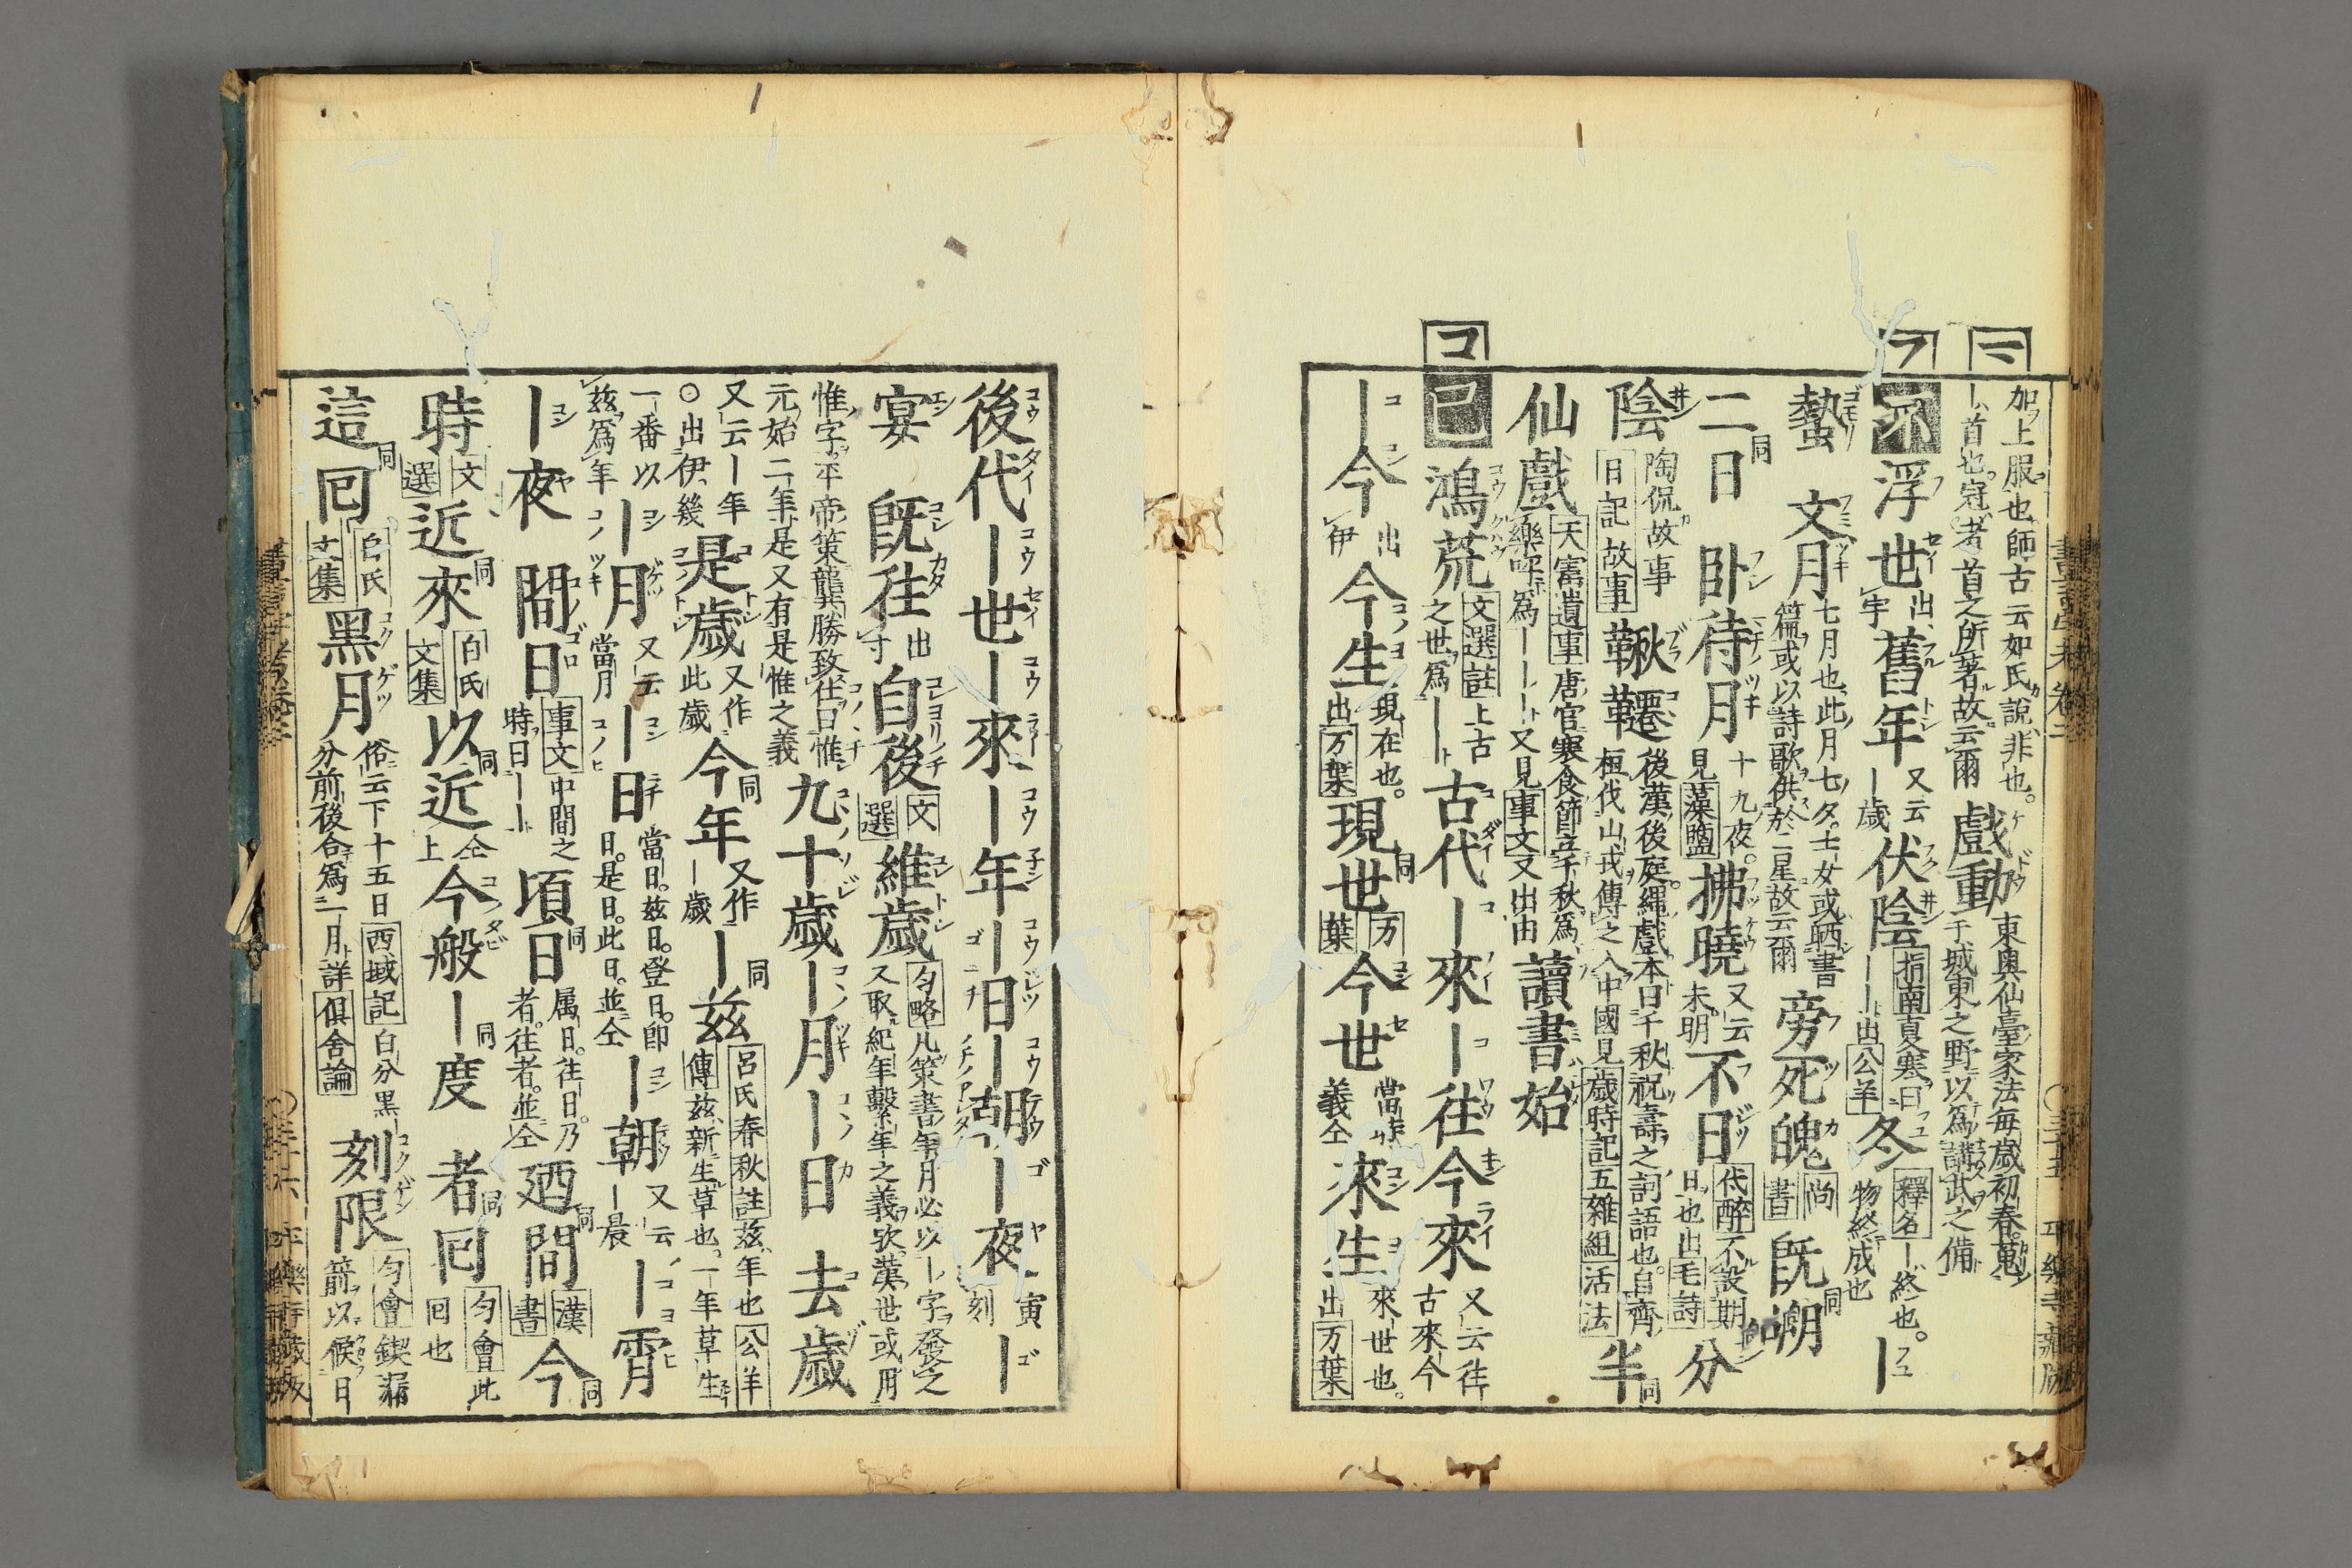 加上服也師古云如氏說非也。
｜首也。冠者首之所著故云爾
戲動
東奥仙臺家法每歲初春。蒐
于城東之野以爲講武之備
フ
浮世
出
宇
舊年
又云
｜歲
伏陰
指南夏寒曰
｜｜出公羊
冬
釋名｜終也。
物終成也
｜
蟄
文月
七月也此月七夕。士女或晒書
篇或以詩歌供於二星故云爾
旁死魄
尚書
既
同
二日
同
卧待月
十九夜。
見藻鹽
拂曉
又云
未明
不日
代醉不設期
日也出毛詩
分
陰
陶侃故事
日記故事
鞦韆
後漢後庭。繩戲本曰千秋祝壽之詞語也自齊
桓伐山戎傳之入中國見歲時記五雜組活法
半
同
仙戲
天寶遺事唐宮寒食節立千秋爲
樂呼爲｜｜｜又見事文又出由
讀書始
コ
鴻荒
文選註上古
之世爲｜｜
古代｜來｜往今來
又云往
古來今
｜今
出
伊
今生
現在也。
出万葉
現世
同
万葉
今世
當時
義仝
來生
來世也。
出万葉
後代｜世｜來｜年｜日｜朝｜夜
寅
刻
｜
宴
既往
出
寸
自後
文選
維歲
匀略凡策書年月必以｜字發之
又取紀年繫年之義欤漢世或用
惟字。平帝策龔勝致仕曰惟
元始二年是又有是惟之義
九十歲｜月｜日
去歲
又云｜年
○出伊幾
是歲
又作
此歲
今年
同
又作
｜歲
｜茲
同
呂氏春秋註茲年也公羊
傳茲新生草也。一年草生
一番以
茲爲年
｜月
又云
當月
｜日
當日。茲日。登日。卽
日。是日。此日。並仝
｜朝
又云
｜晨
｜霄
｜夜
間日
事文中間之
時曰｜｜
頃日
同
属日。往日。乃
者。往者。並仝
廼間
同
漢書
今
同
時
文選
近來
同
白氏文集
以近
同
仝上
今般｜度
同
者回
同
匀會此
回也
這回
同
白氏文集
黑月
俗云下十五日西域記白分黑｜
分前後合爲一月詳俱舍論
刻限
匀會鍥漏
箭以候日